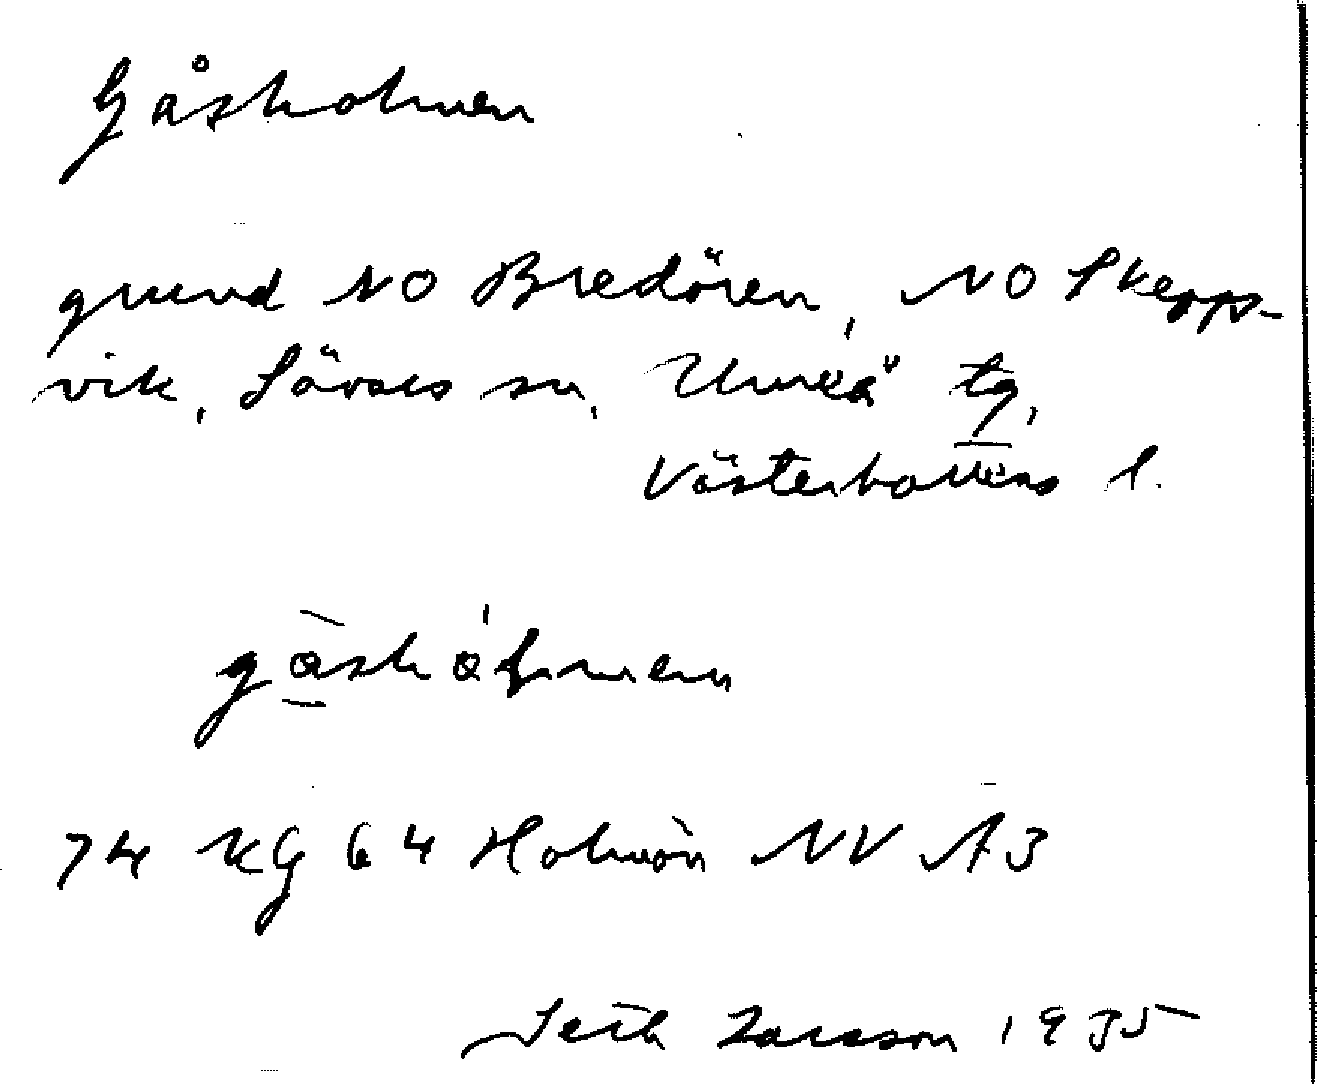 Gåsholmen
grund NO Bredören, NO Skepp-
vik, Sävars sn, Umeå tg,
Västerbottens l.
74 KG 64 Holmön NV A3
Seth Larsson 1935